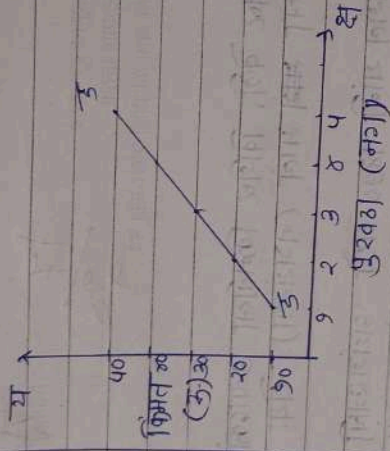 य
ड
५०
किंमत ४०
(रु.) ३०
२०
१०
ड
१ २ ३ ४ ५ क्ष
पुरवठा (नग)